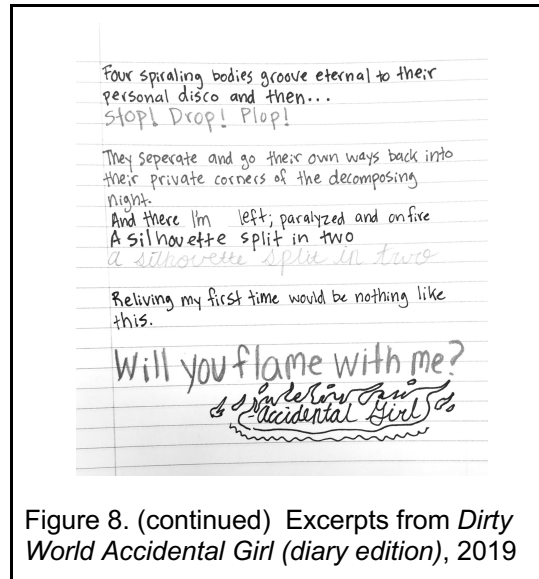 Four spiraling bodies groove eternal to their
personal disco and then...
Stop! Drop! Plop!
They seperate and go their own ways back into
their private corners of the decomposing
night.
And there I'm left; paralyzed and on fire
A silhovette split in two
a silhovette split in two
Reliving my first time would be nothing like
this.
Will you flame with me?
Accidental Girl
Figure 8. (continued) Excerpts from Dirty
World Accidental Girl (diary edition), 2019